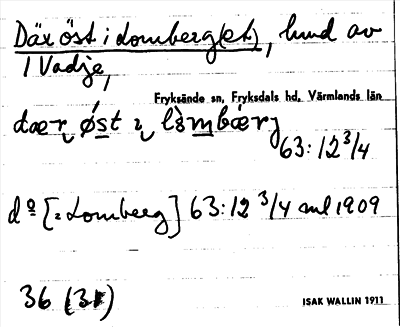 Där öst i Lomberg(et), lund av
1 Vadje,
Fryksände sn, Fryksdals hd, Värmlands län
dær øst ı lòmbærj
63:12 3/4
dº [: Lomberg] 63:12 3/4 ml 1909
36 (31)
ISAK WALLIN 1911